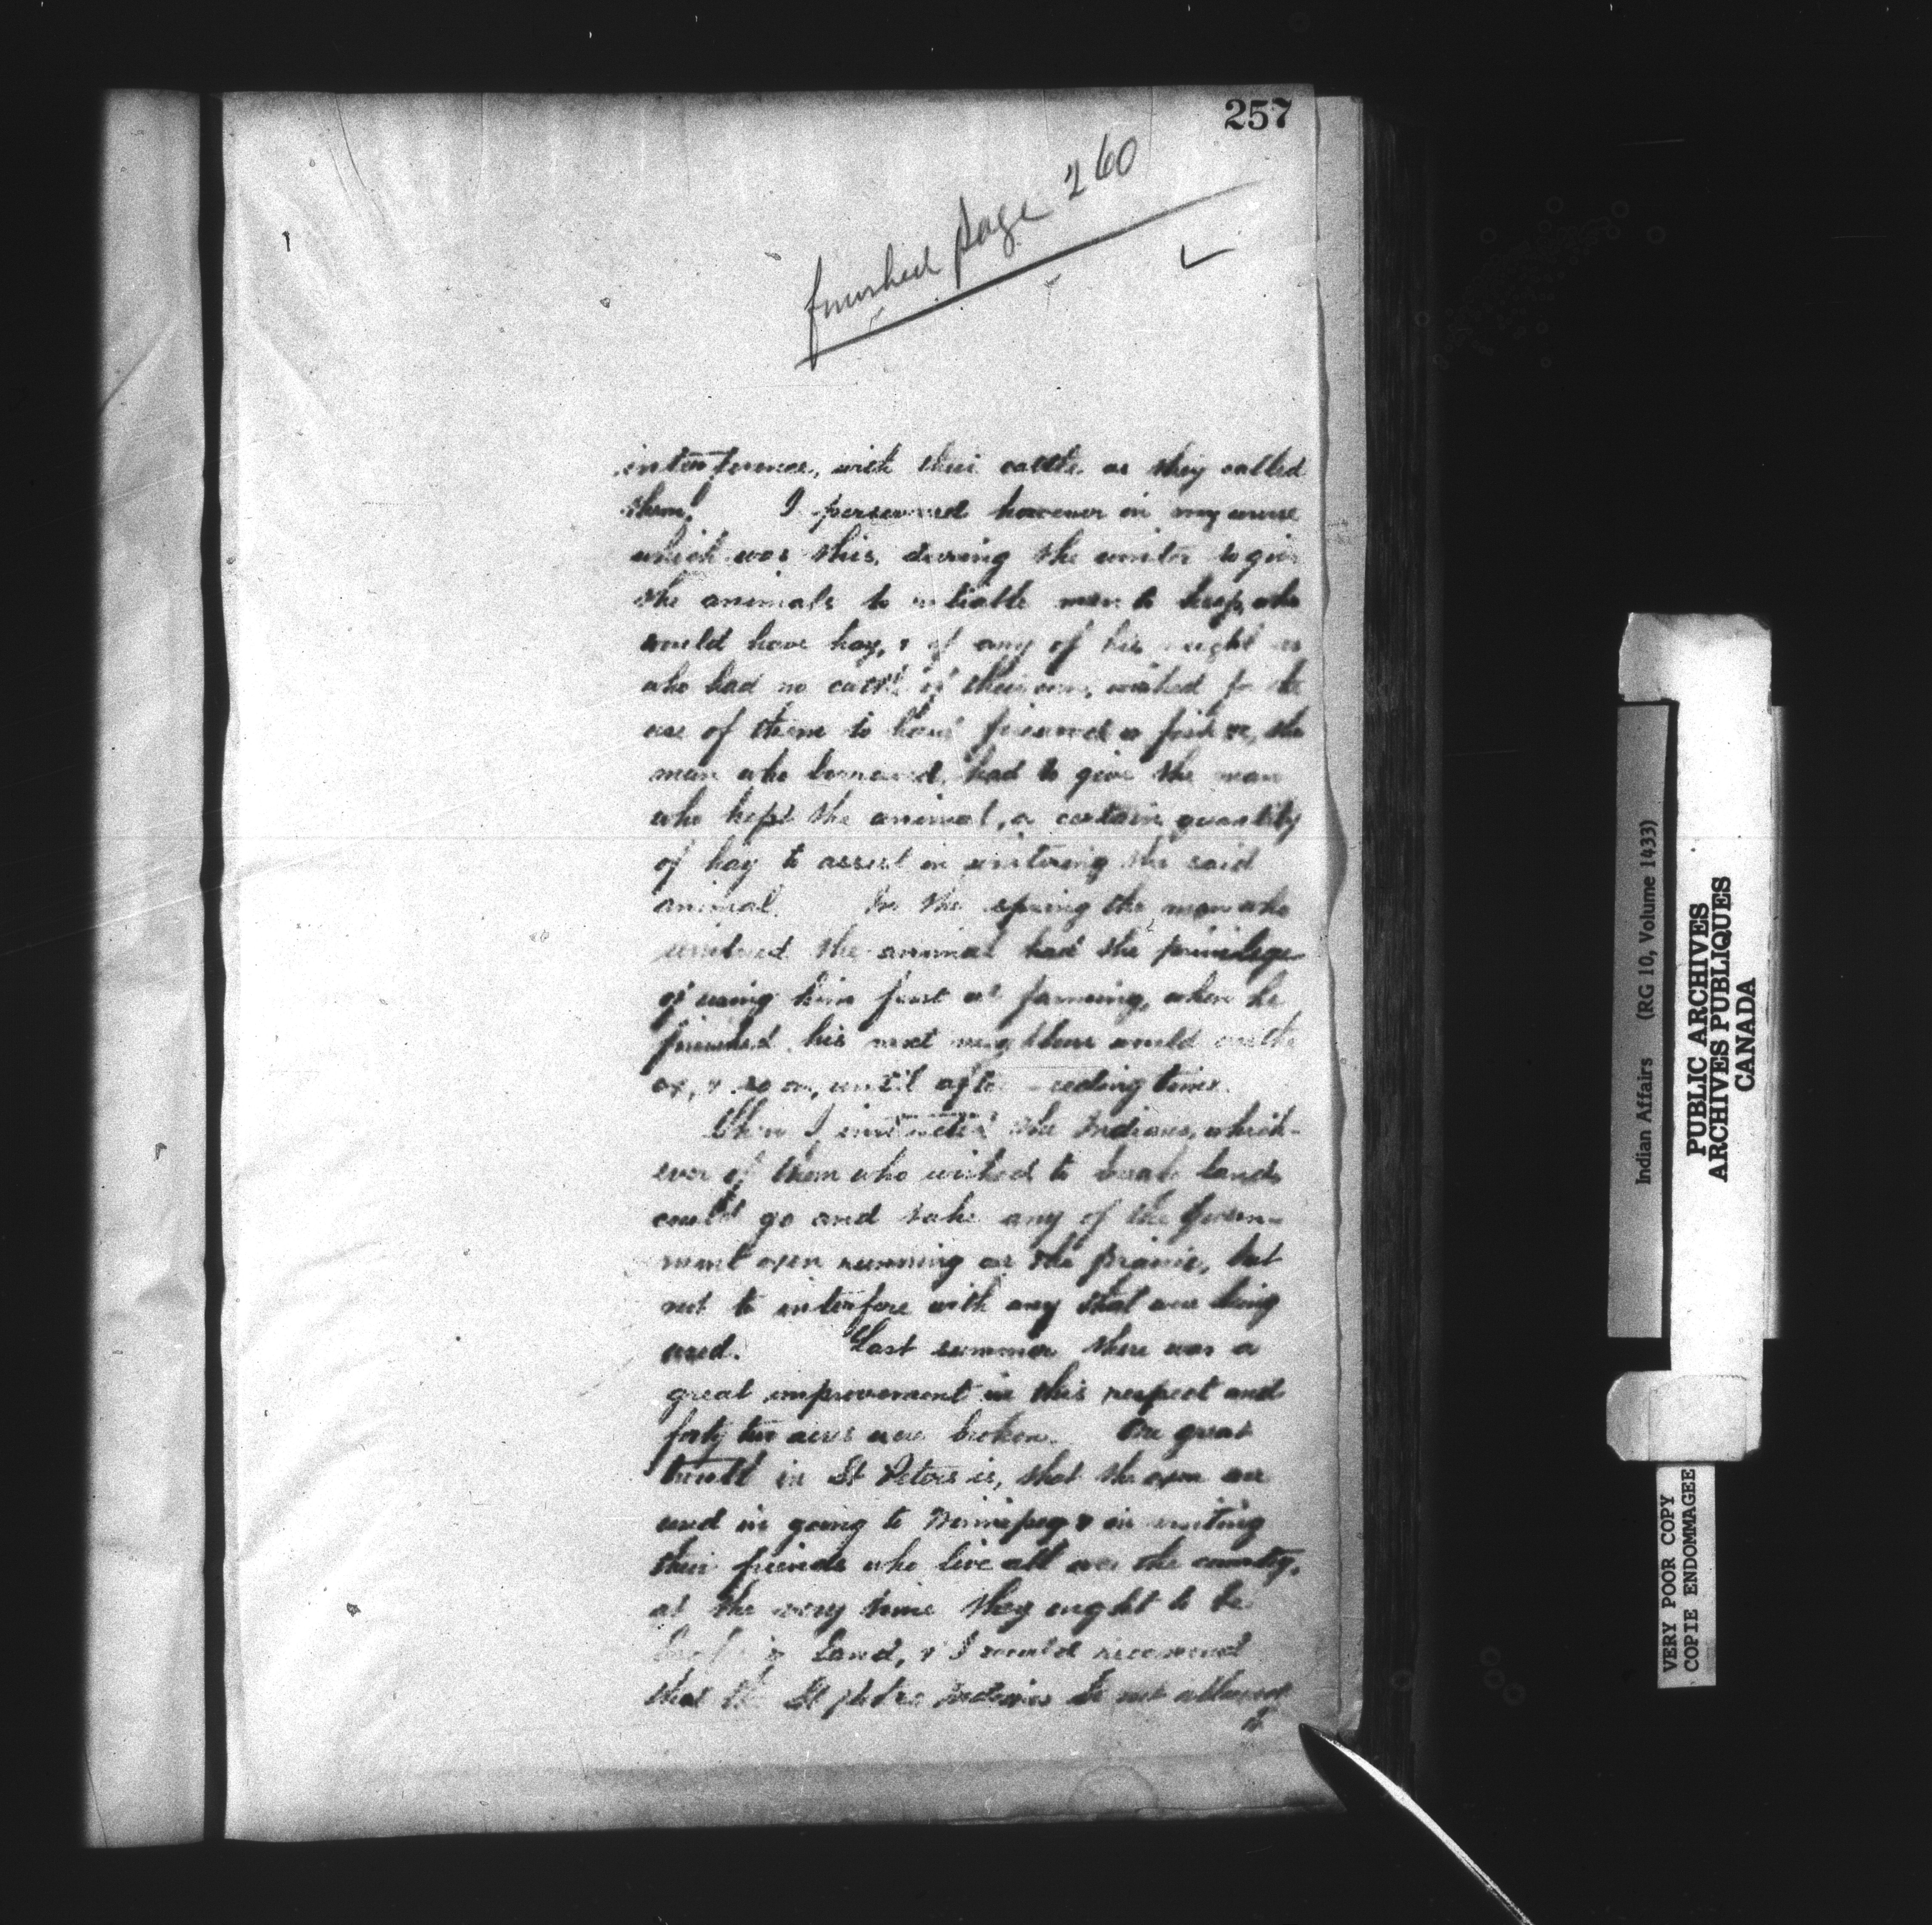 257
finished page 260
interference, with their cattle as they called
them. I persevered however in my course
which was this, during the winter to give
the animals to reliable men to keep, who
would have hay, & if any of his neighbors
who had no cattle of their own, wished for the
use of them to haul firewood or fish &c, the
man who borrowed, had to give the man
who kept the animal, a certain quantity
of hay to assist in wintering the said
animal. In the spring the man who
wintered the animal had the privilege
of using him first at farming, when he
finished his next neighbour would use the
ox, & so on, until after seeding time.
Then I instructed the Indians, which-
ever of them who wished to break land
could go and take any of the Govern-
ment oxen running on the prairie, but
not to interfere with any that was being
used. Last summer there was a
great improvement in this respect and
forty two acres were broken. One great
trouble in St Peters is, that the oxen are
used in going to Winnipeg & in visiting
their friends who live all over the country,
at the very time they ought to be
breaking land, & I would recommend
that the St Peters Indians be not allowed
to
Indian Affairs (RG 10, Volume 1433)
PUBLIC ARCHIVES
ARCHIVES PUBLIQUES
CANADA
VERY POOR COPY
COPIE ENDOMMAGEE